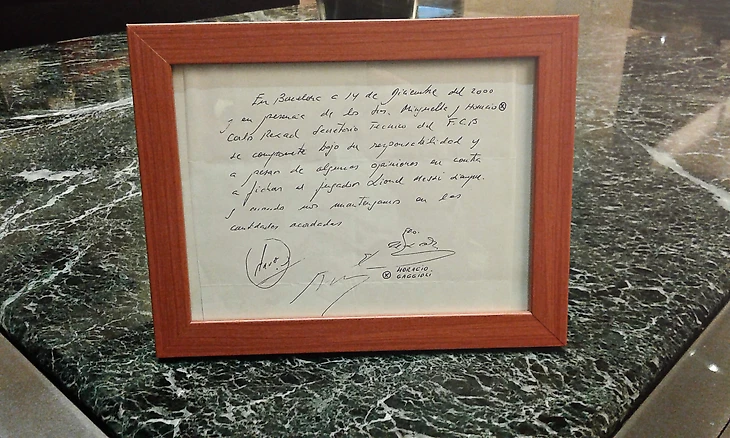 En Barcelona a 14 de diciembre del 2000
y en presencia de los Sres. Minguella y Horacio ®
Carles Rexach Secretario Técnico del F.C.B
se compromete bajo su responsabilidad y
a pesar de algunas opiniones en contra
a fichar al jugador Lionel Messi siempre
y cuando nos mantengamos en las
cantidades acordadas
® HORACIO
GAGGIOLI